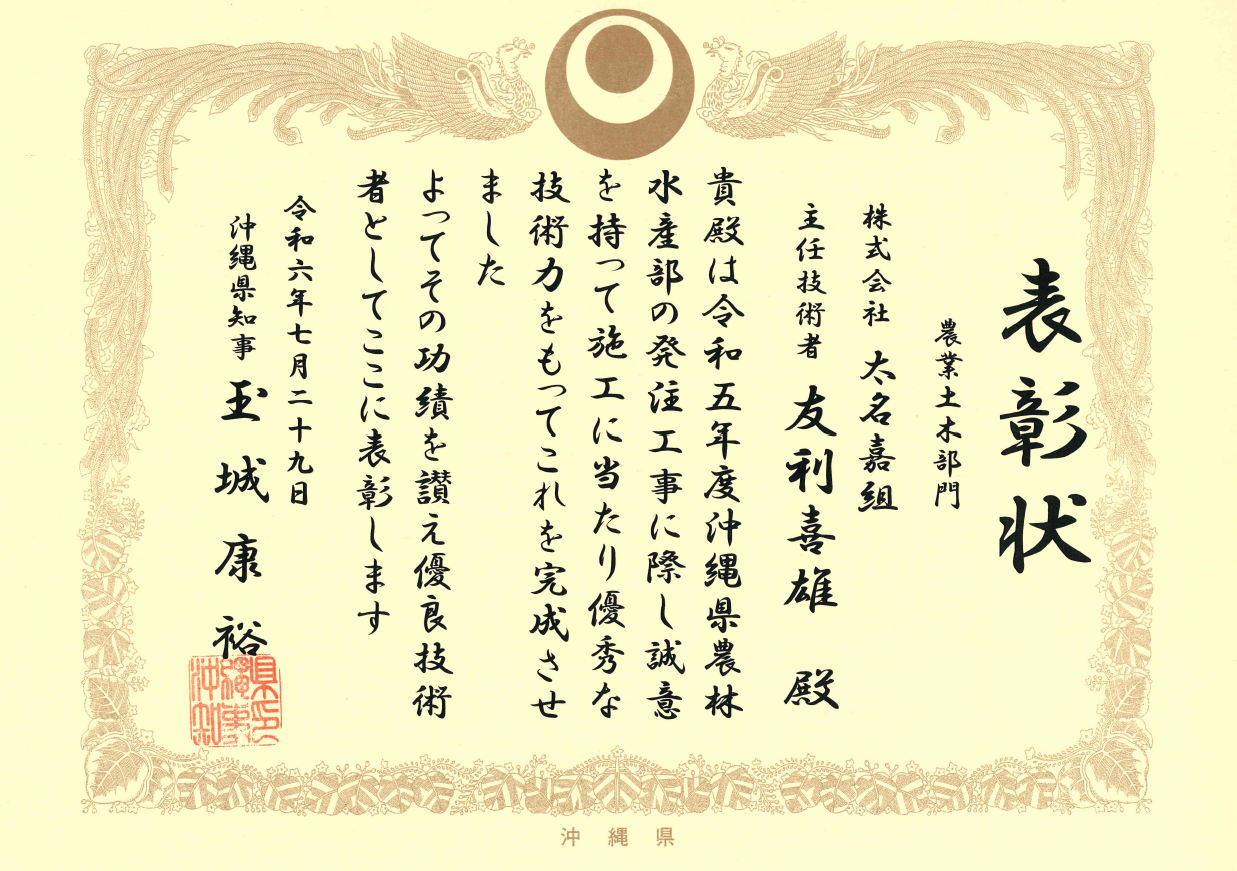 表彰状
農業土木部門
株式会社 太名嘉組
主任技術者 友利喜雄 殿
貴殿は令和五年度沖縄県農林
水産部の発注工事に際し誠意
を持って施工に当たり優秀な
技術力をもってこれを完成させ
ました
よってその功績を讃え優良技術
者としてここに表彰します
令和六年七月二十九日
沖縄県知事 玉城康裕
沖縄県